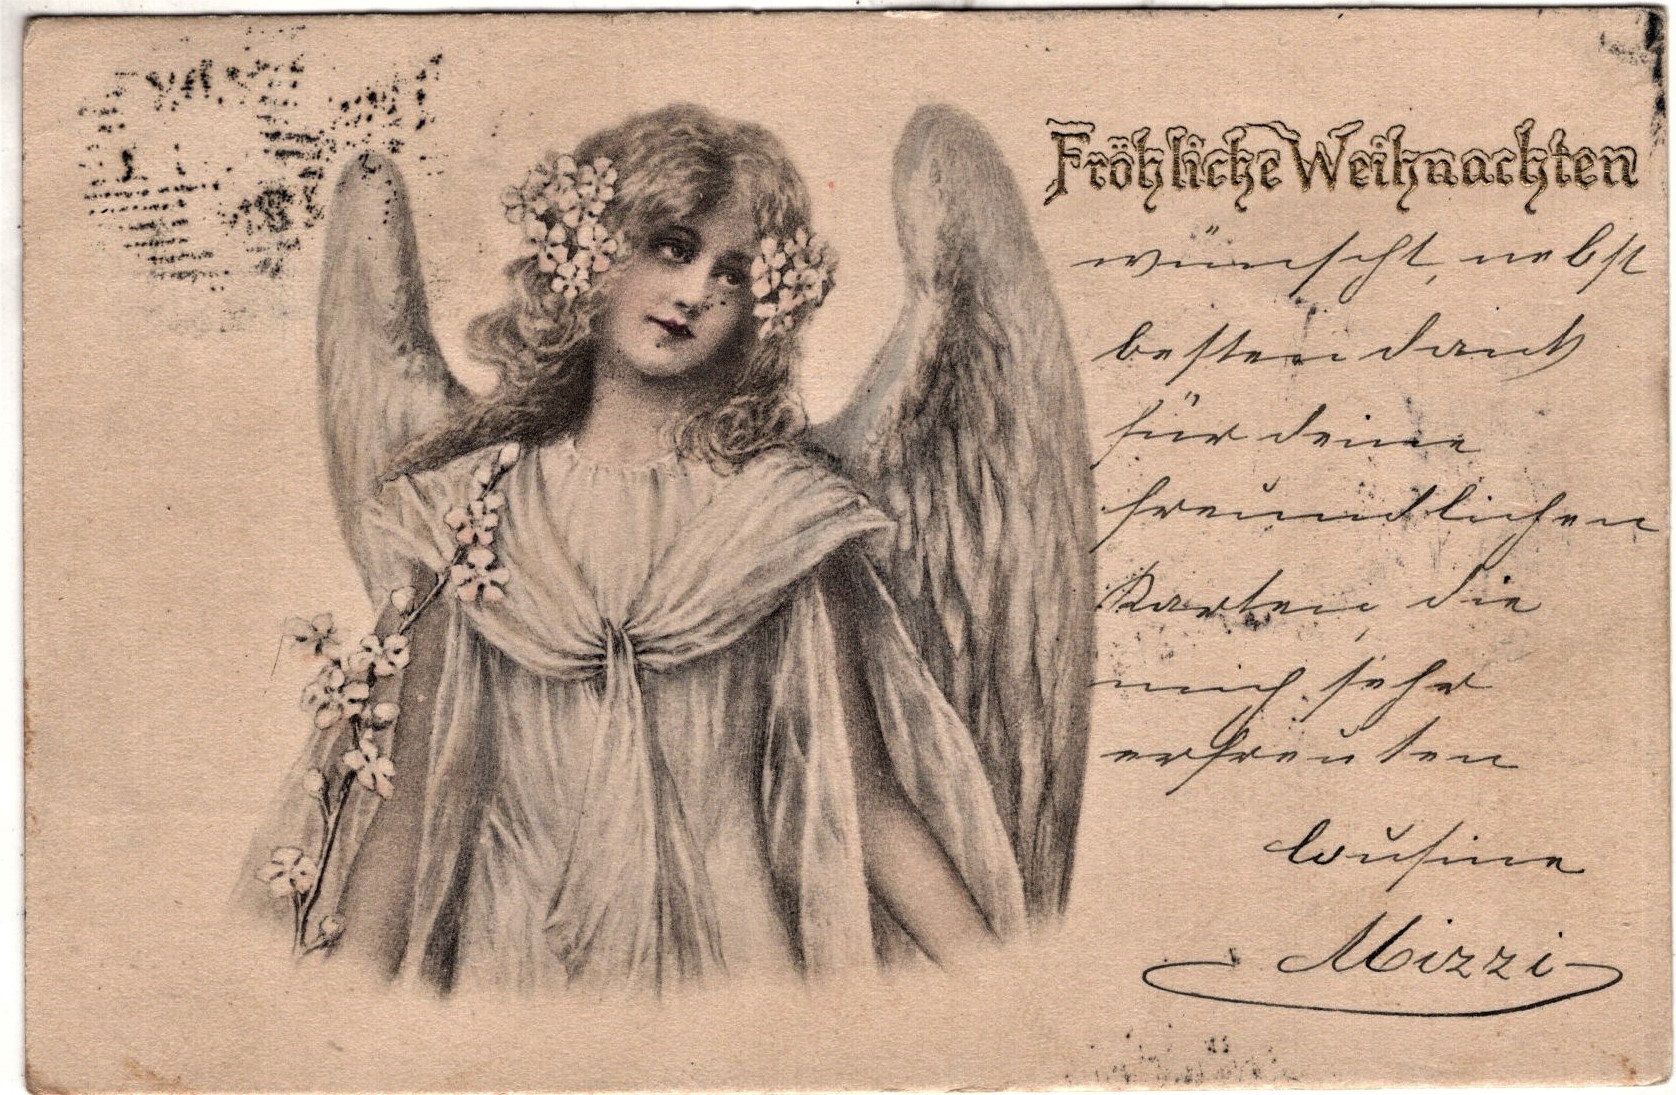 Fröhliche Weihnachten
wünscht, nebst
besten dank
für deine
freundlichen
Karten, die
mich sehr
erfreuten
Cousine
Mizzi